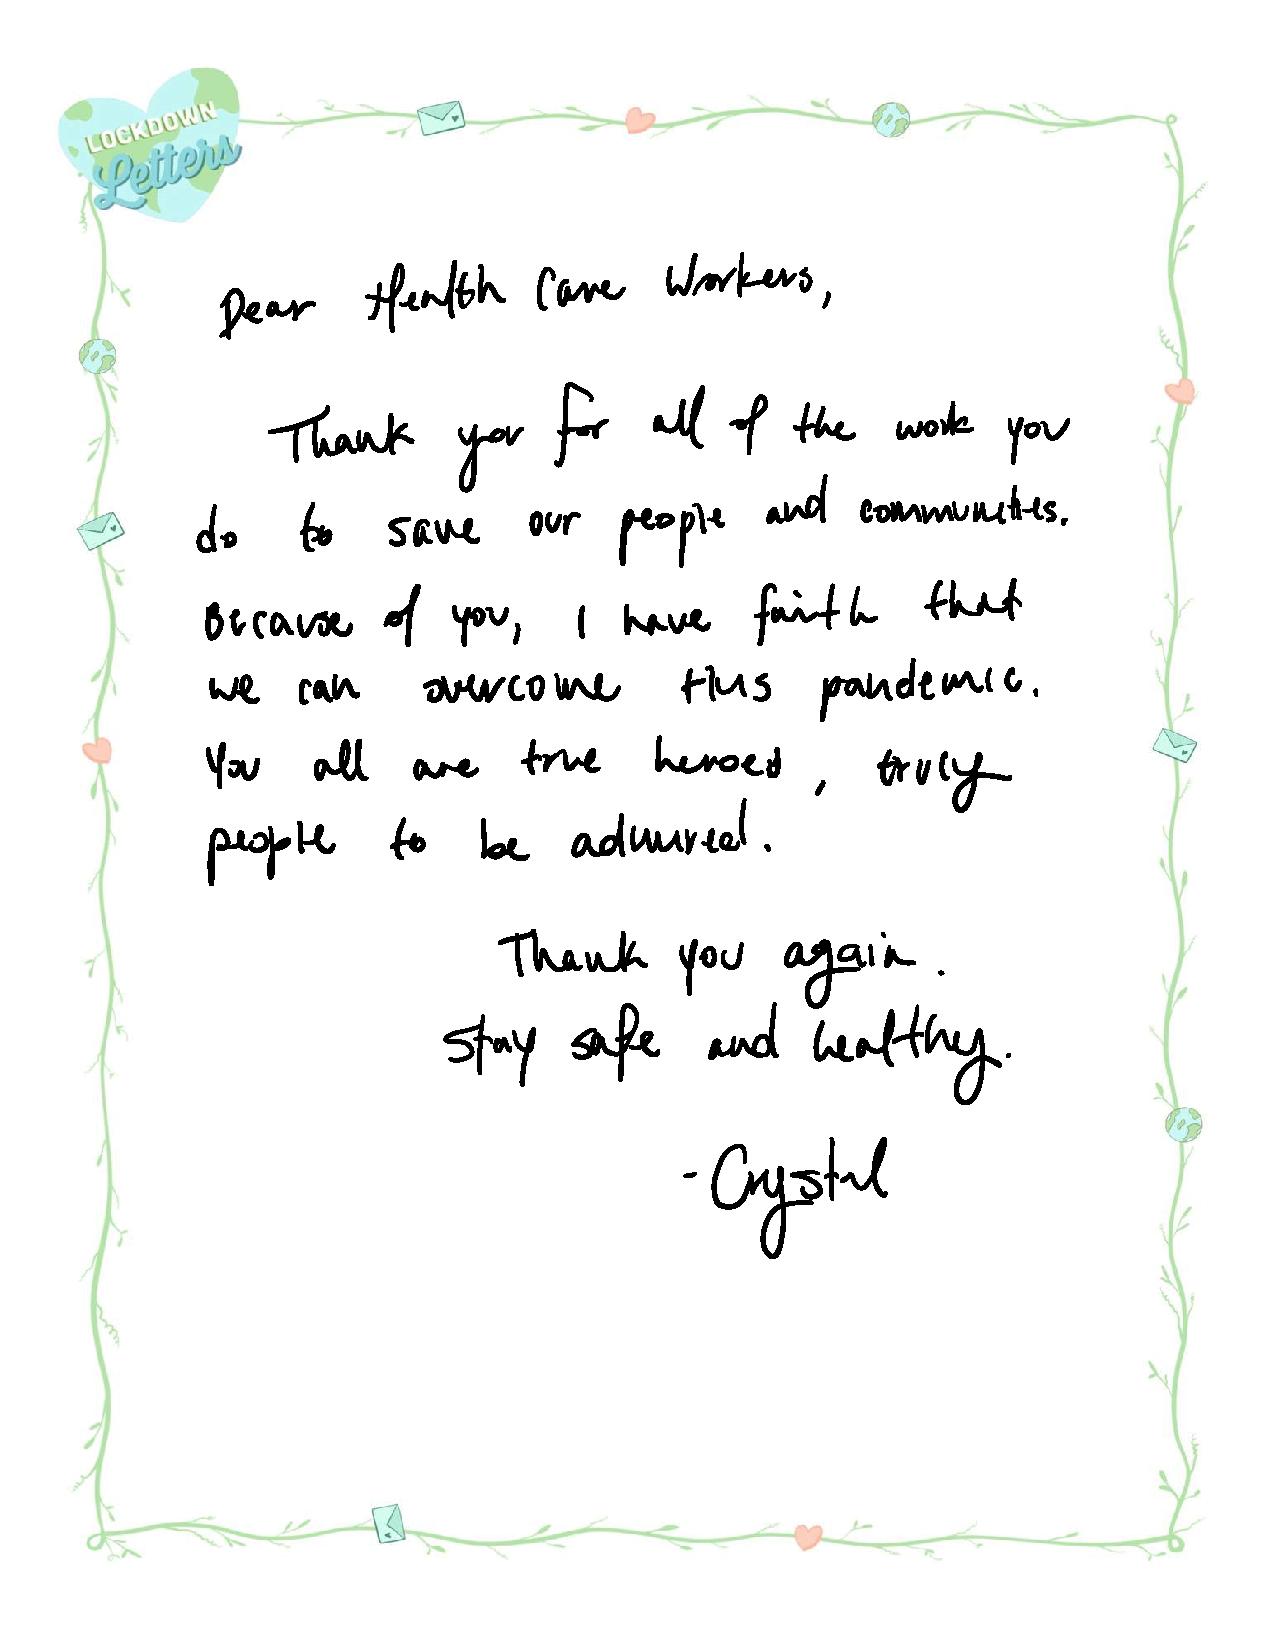 LOCKDOWN
Letters
Dear Health Care Workers,
Thank you for all of the work you
do to save our people and communities.
Because of you, I have faith that
we can overcome this pandemic.
You all are true heroes, truly
people to be admired.
Thank you again.
Stay safe and healthy.
-Crystal